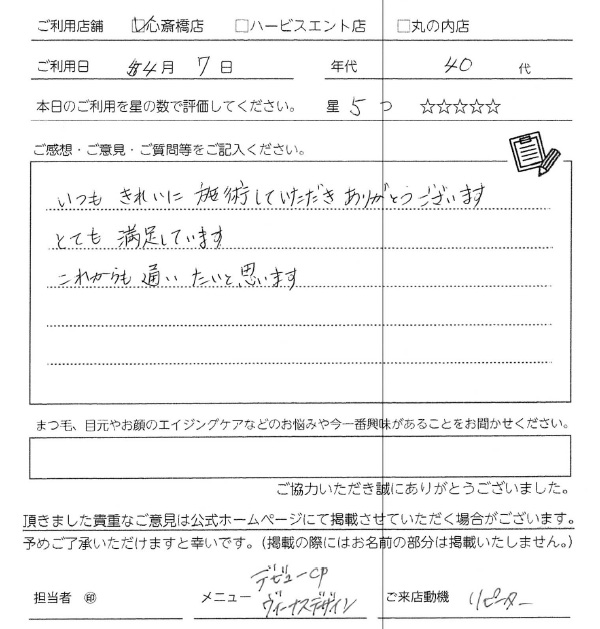 ご利用店舗 ☑心斎橋店 □ハービスエント店 □丸の内店
ご利用日 4月 7日 年代 40 代
本日のご利用を星の数で評価してください。 星 5つ ☆☆☆☆☆
ご感想・ご意見・ご質問等をご記入ください。
いつも きれいに 施術していただき ありがとうございます
とても 満足しています
これからも 通い たいと思います
まつ毛、目元やお顔のエイジングケアなどのお悩みや今一番興味があることをお聞かせください。
ご協力いただき誠にありがとうございました。
頂きました貴重なご意見は公式ホームページにて掲載させていただく場合がございます。
予めご了承いただけますと幸いです。（掲載の際にはお名前の部分は掲載いたしません。）
デビューCP
担当者 ㊞ メニュー ヴィーナスデザイン ご来店動機 リピーター